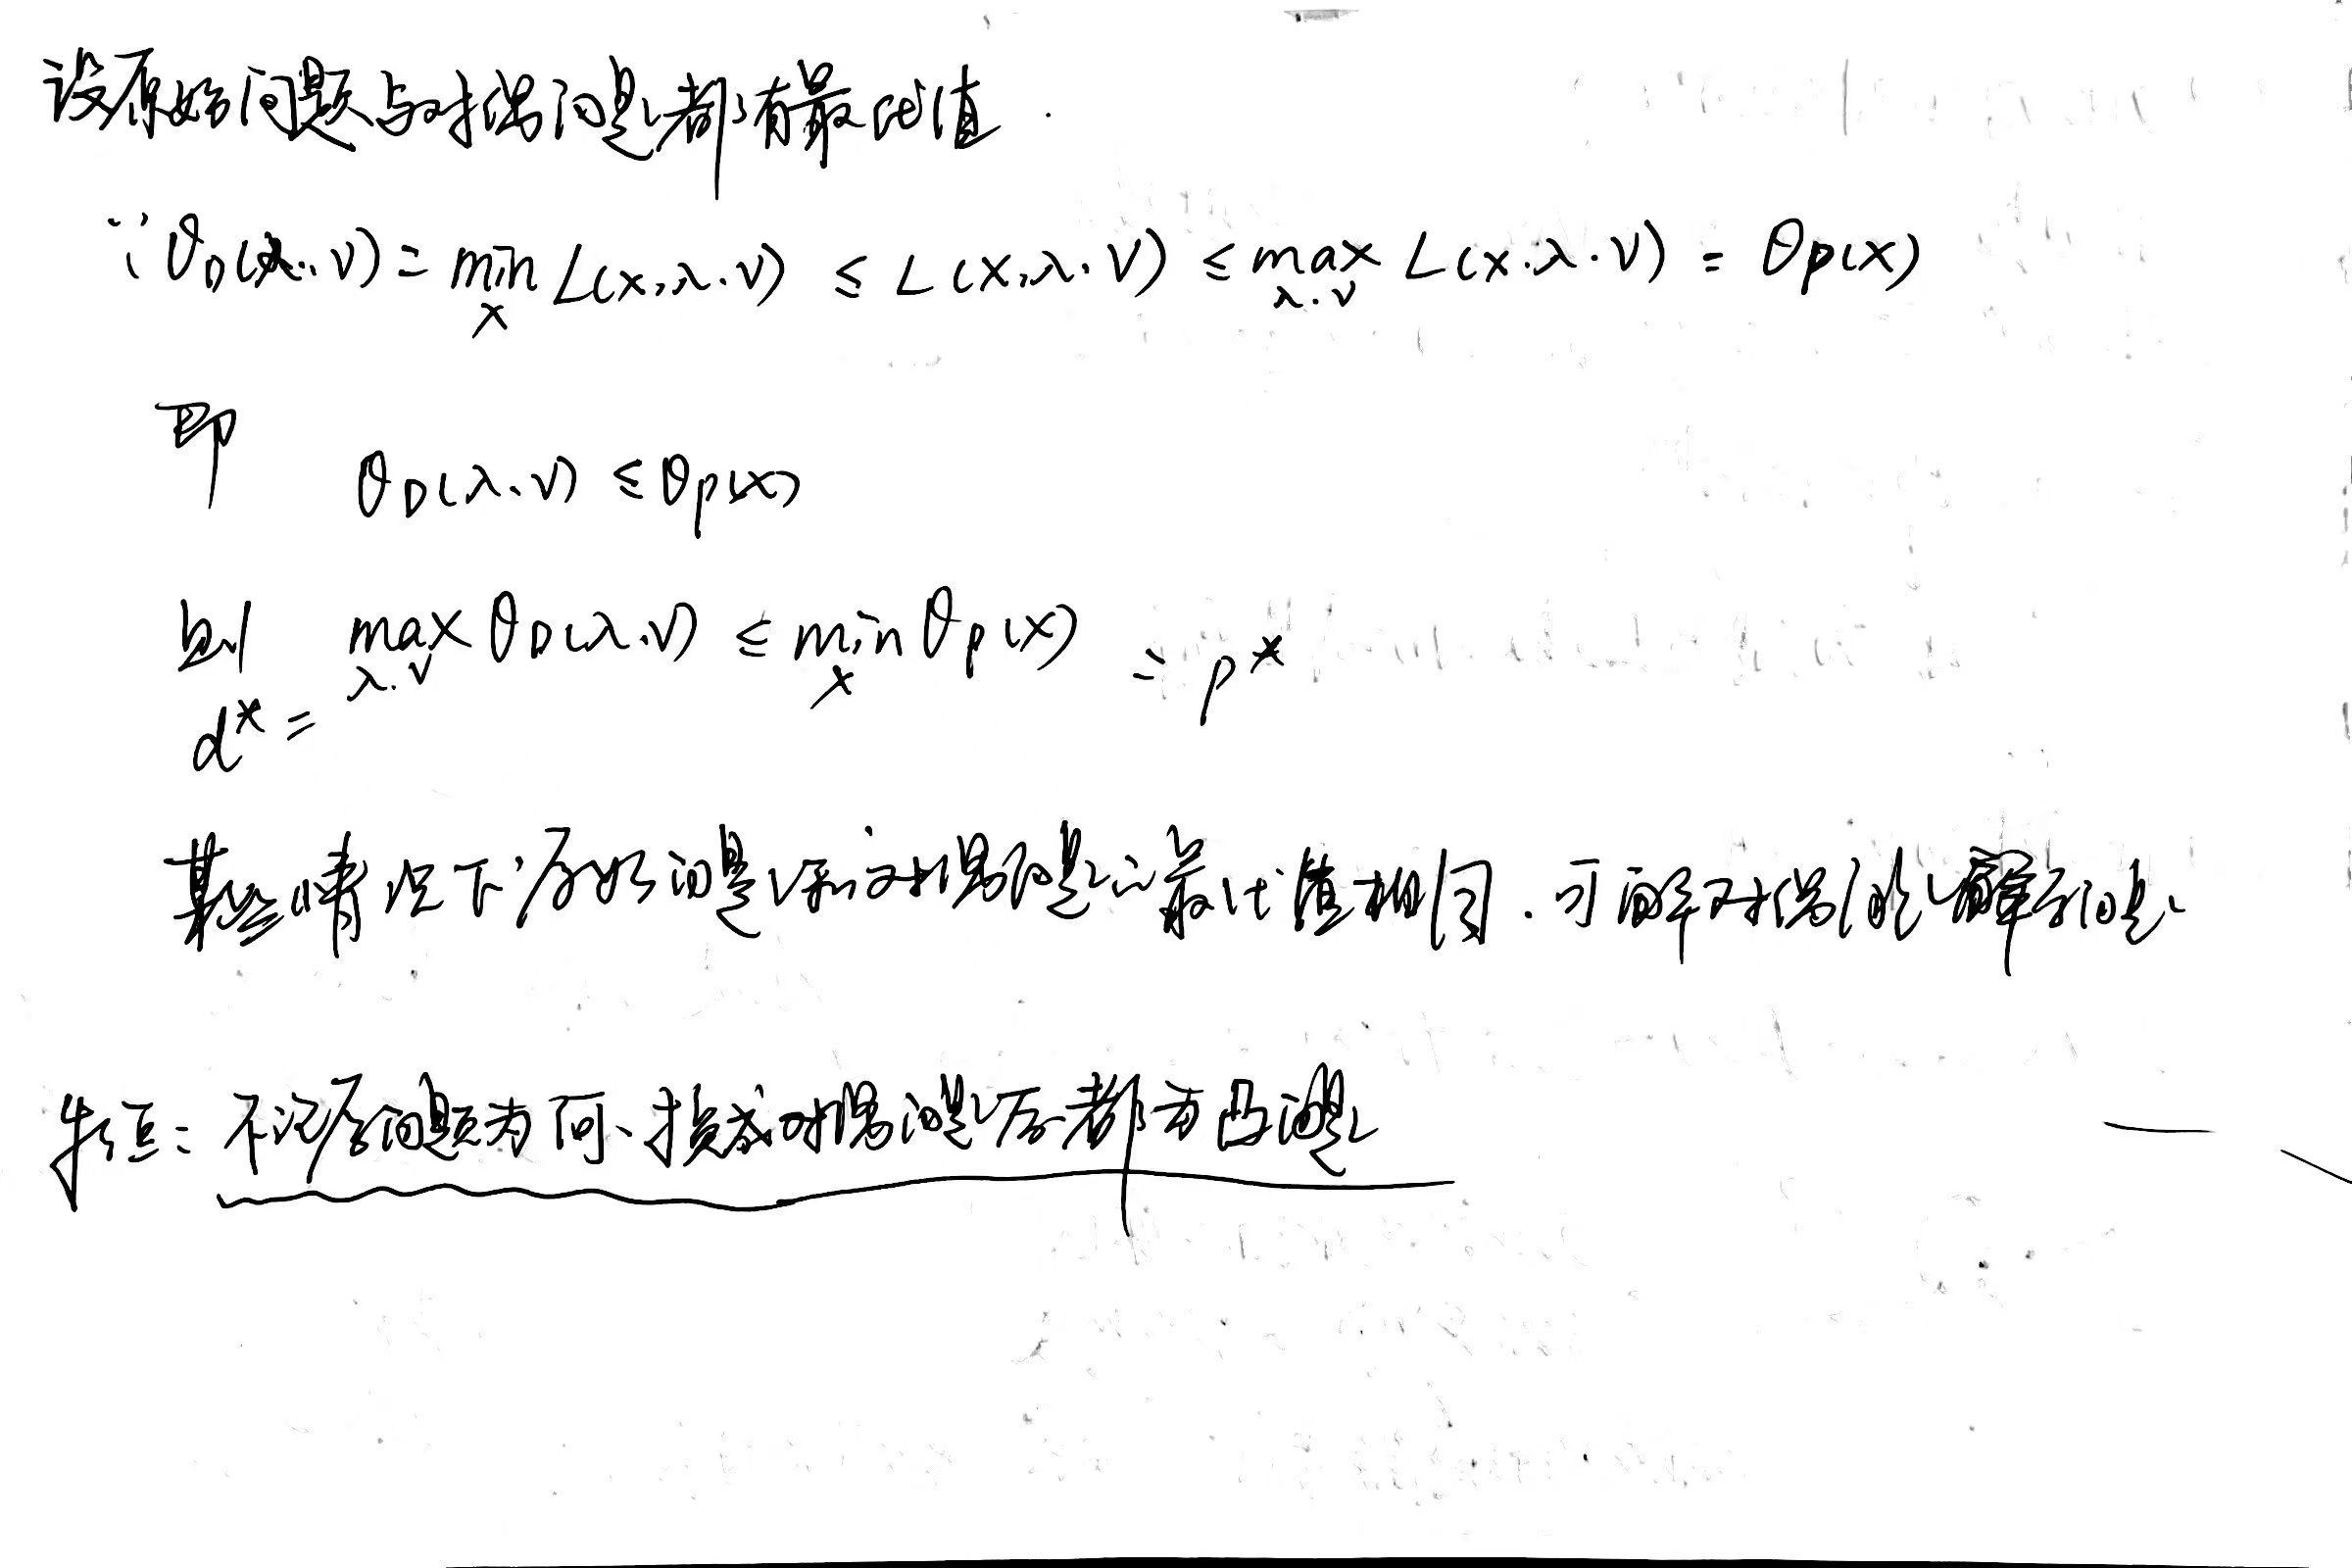 设原始问题与对偶问题都有最优值.
∵ θ_D(λ,ν) = min_x L(x,λ,ν) ≤ L(x,λ,ν) ≤ max_{λ,ν} L(x,λ,ν) = θ_P(x)
即
θ_D(λ,ν) ≤ θ_P(x)
则 max_{λ,ν} θ_D(λ,ν) ≤ min_x θ_P(x) = p*
d* =
某些情况下,原始问题和对偶问题的最优值相同.可解对偶问题解原问题
特点:不论原问题为何、换成对偶问题后都为凸问题